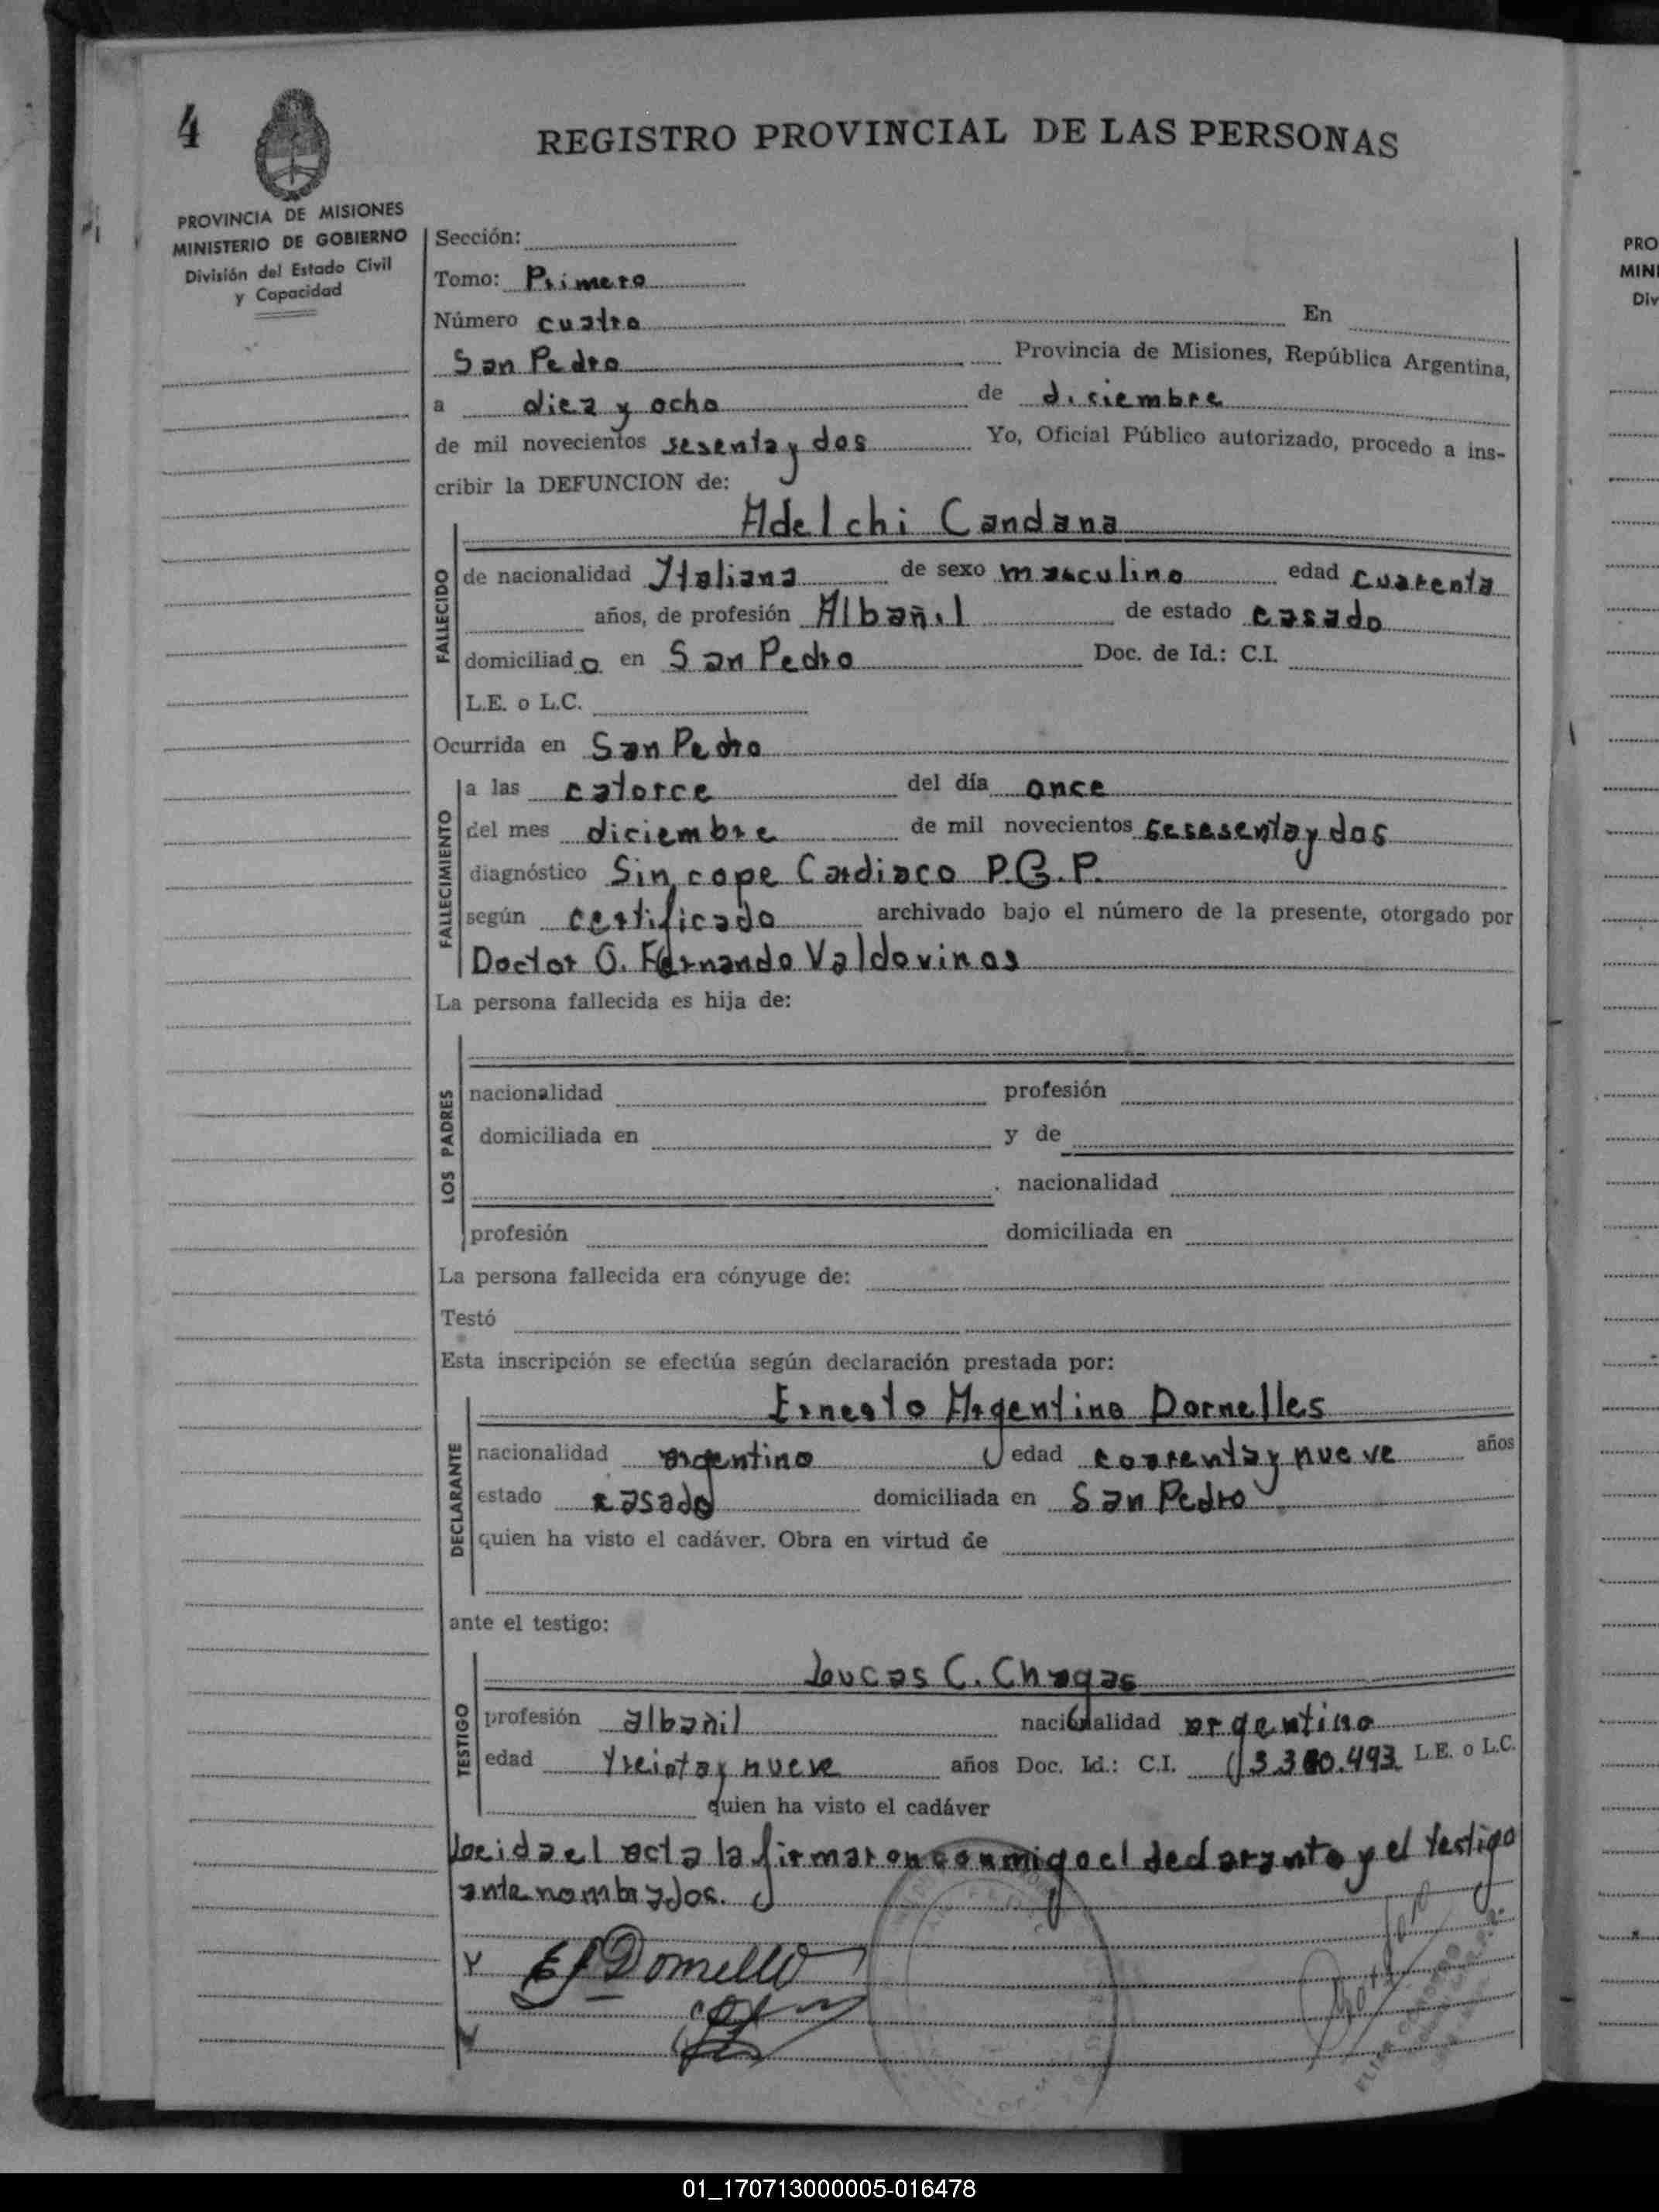 4
REGISTRO PROVINCIAL DE LAS PERSONAS
PROVINCIA DE MISIONES
MINISTERIO DE GOBIERNO
División del Estado Civil
y Capacidad
Sección:
Tomo: Primero
Número cuatro En
San Pedro Provincia de Misiones, República Argentina,
a diez y ocho de diciembre
de mil novecientos sesenta y dos Yo, Oficial Público autorizado, procedo a ins-
cribir la DEFUNCION de:
Adelchi Candana
FALLECIDO
de nacionalidad Italiana de sexo masculino edad cuarenta
años, de profesión Albañil de estado casado
domiciliado en San Pedro Doc. de Id.: C.I.
L.E. o L.C.
Ocurrida en San Pedro
FALLECIMIENTO
a las catorce del día once
del mes diciembre de mil novecientos sesesenta y dos
diagnóstico Sincope Cardiaco P.G.P.
según certificado archivado bajo el número de la presente, otorgado por
Doctor O. Fernando Valdovinos
La persona fallecida es hija de:
LOS PADRES
nacionalidad profesión
domiciliada en y de
nacionalidad
profesión domiciliada en
La persona fallecida era cónyuge de:
Testó
Esta inscripción se efectúa según declaración prestada por:
Ernesto Argentino Dornelles
DECLARANTE
nacionalidad argentino edad coarenta y nueve años
estado casado domiciliada en San Pedro
quien ha visto el cadáver. Obra en virtud de
ante el testigo:
Loucas C. Chagas
TESTIGO
profesión albañil nacionalidad argentino
edad treinta y nueve años Doc. Id.: C.I. L.E. o L.C.
quien ha visto el cadáver
Leeida el acta la firmaron conmigo el declarante y el testigo
ante nombrados.
PRO
MINI
Div
01_170713000005-016478